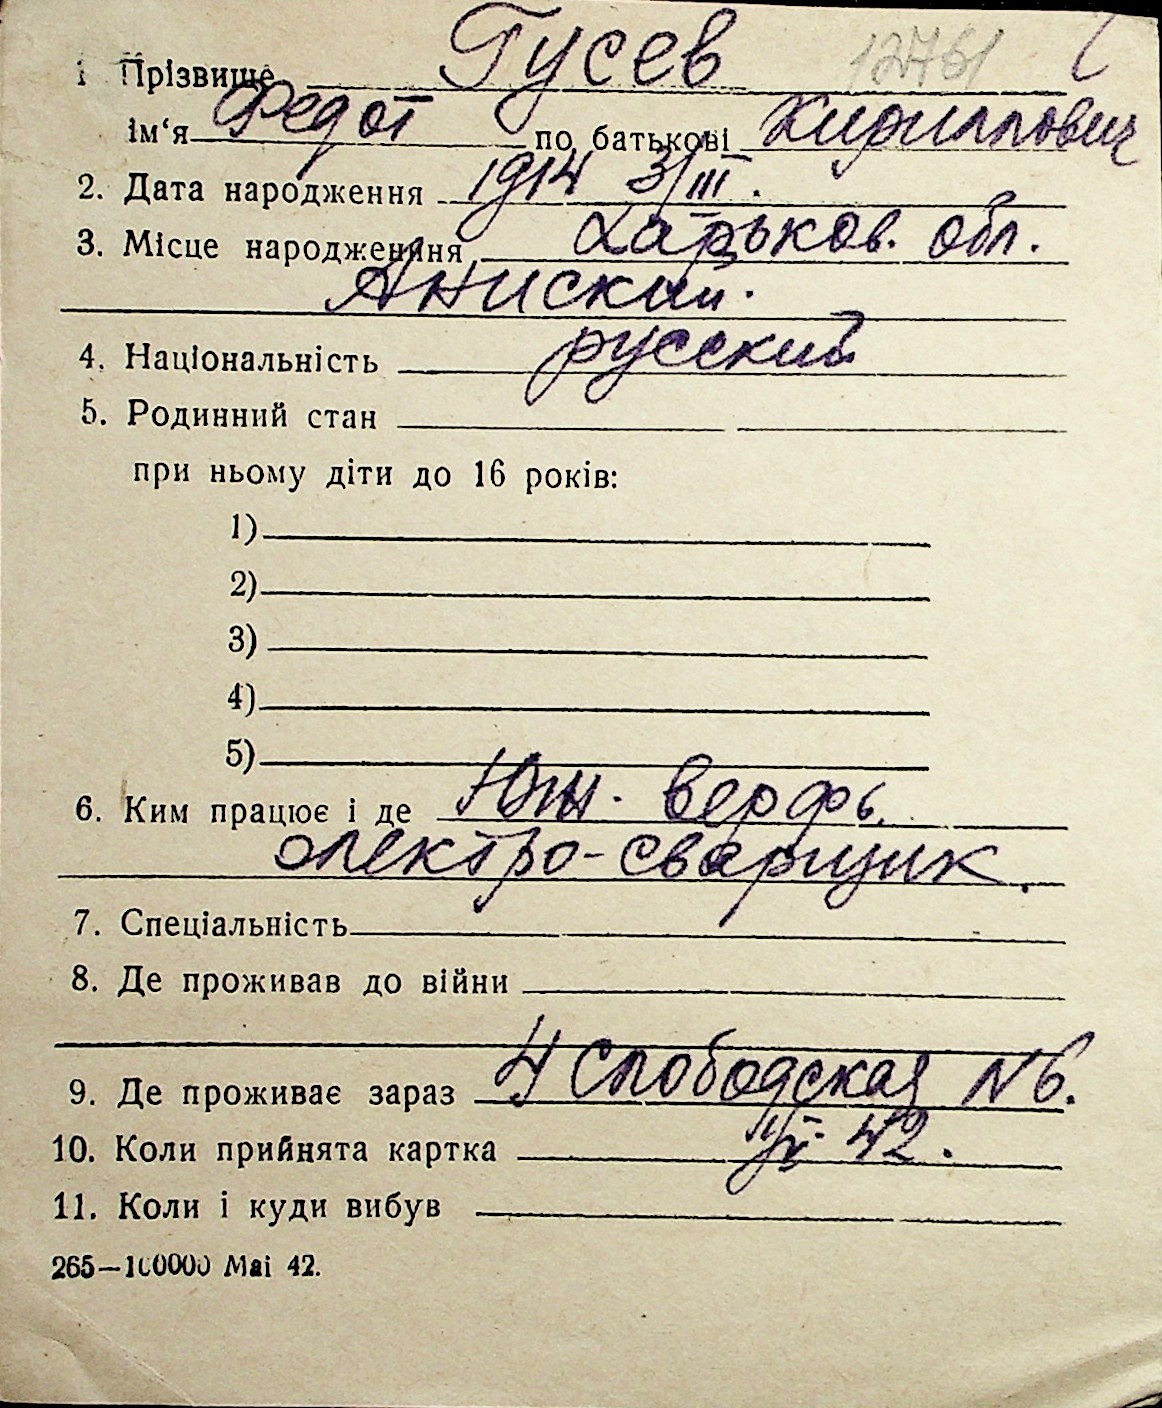 Гусев 12761
1 Прізвище
Федот Кириллович
ім‘я по батькові
1914 3/III.
2. Дата народження
Харьков. обл.
3. Місце народження
Анискин.
русский
4. Національність
5. Родинний стан
при ньому діти до 16 років:
1)
2)
3)
4)
5)
6. Ким працює і де Юж. верфь.
электро-сварщик.
7. Спеціальність
8. Де проживав до війни
9. Де проживає зараз 4 Слободская N 6.
10. Коли прийнята картка 42.
11. Коли і куди вибув
265—100000 Mai 42.